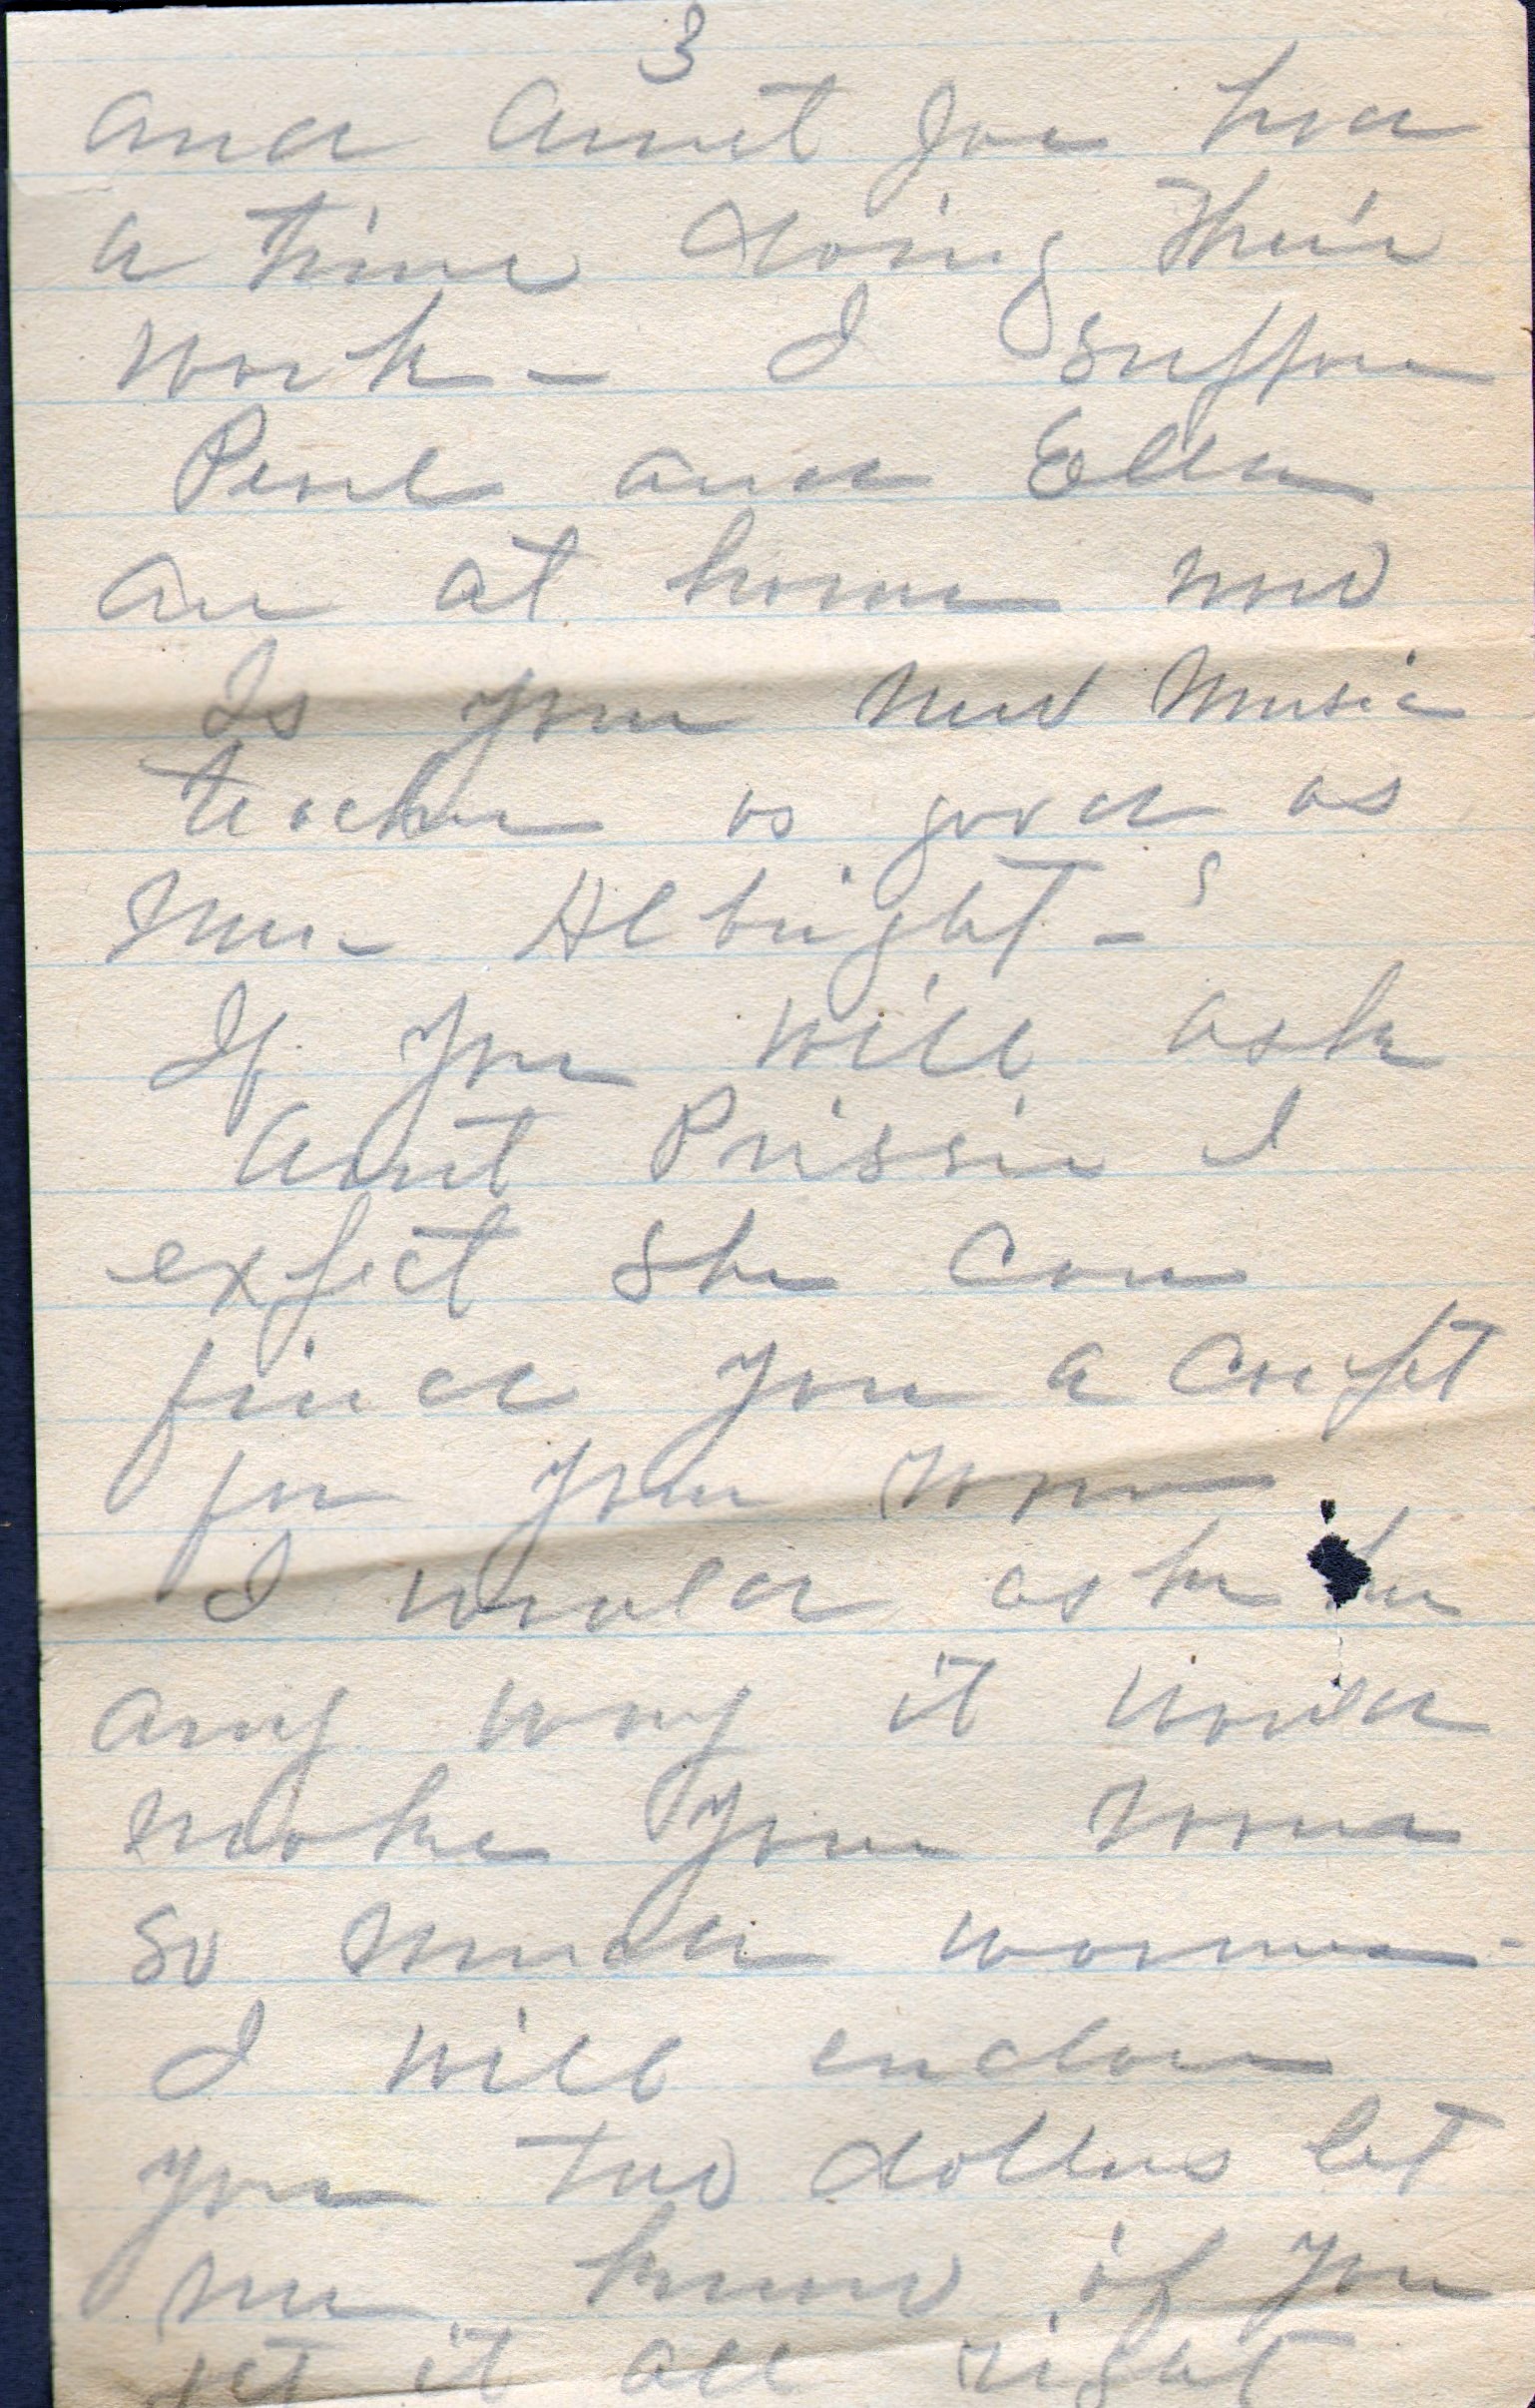 3
and Aunt Joe had
a time doing their
work - I suppose
Pearl and Ella
are at home now
Is your new music
teacher as good as
Mrs - Albright - ?
If you will ask
Aunt Prissie I
expect she can
find you a carpet
for your room
I would ask her
any way it would
make your room
so much warmer -
I will enclose
you two dollars let
me know if you
get it all right